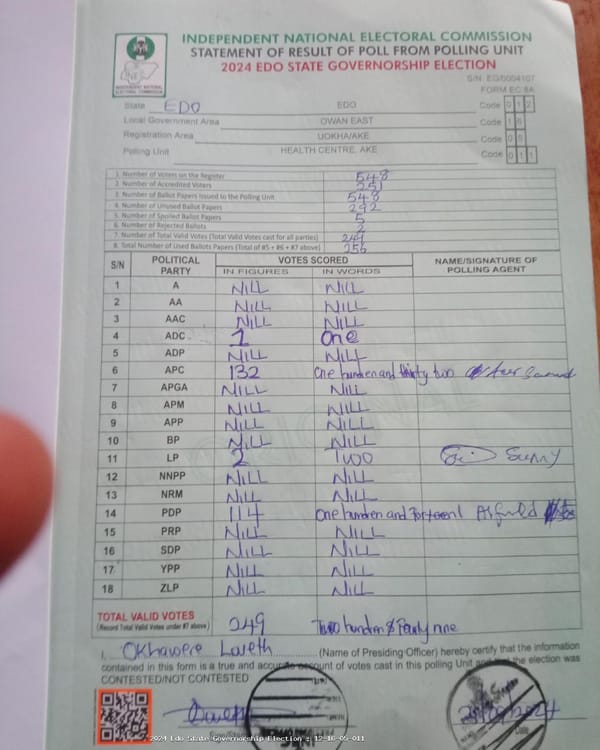 INDEPENDENT NATIONAL ELECTORAL COMMISSION
STATEMENT OF RESULT OF POLL FROM POLLING UNIT
2024 EDO STATE GOVERNORSHIP ELECTION
S/N. EG/0004107
FORM EC 8A
INDEPENDENT NATIONAL ELECTORAL COMMISSION
State EDO EDO Code 012
Local Government Area OWAN EAST Code 16
Registration Area UOKHA/AKE Code 05
Polling Unit HEALTH CENTRE, AKE Code 011
1. Number of Voters on the Register 548
2. Number of Accredited Voters 251
3. Number of Ballot Papers Issued to the Polling Unit 548
4. Number of Unused Ballot Papers 292
5. Number of Spoiled Ballot Papers 5
6. Number of Rejected Ballots 2
7. Number of Total Valid Votes (Total Valid Votes cast for all parties) 249
8. Total Number of Used Ballots Papers (Total of #5 + #6 + #7 above) 256
S/N POLITICAL PARTY VOTES SCORED NAME/SIGNATURE OF POLLING AGENT
IN FIGURES IN WORDS
1 A NILL NILL
2 AA NILL NILL
3 AAC NILL NILL
4 ADC 1 One
5 ADP NILL NILL
6 APC 132 One hunden and thirty two
7 APGA NILL NILL
8 APM NILL NILL
9 APP NILL NILL
10 BP NILL NILL
11 LP 2 Two Sunny
12 NNPP NILL NILL
13 NRM NILL NILL
14 PDP 114 One hunden and forteent
15 PRP NILL NILL
16 SDP NILL NILL
17 YPP NILL NILL
18 ZLP NILL NILL
TOTAL VALID VOTES 249 Two hundren & Fourty nine
(Record Total Valid Votes under #7 above)
I, Okhawere Loveth (Name of Presiding Officer) hereby certify that the information
contained in this form is a true and accurate account of votes cast in this polling Unit and that the election was
CONTESTED/NOT CONTESTED
Date
2024 Edo State Governorship Election : 12-16-05-011